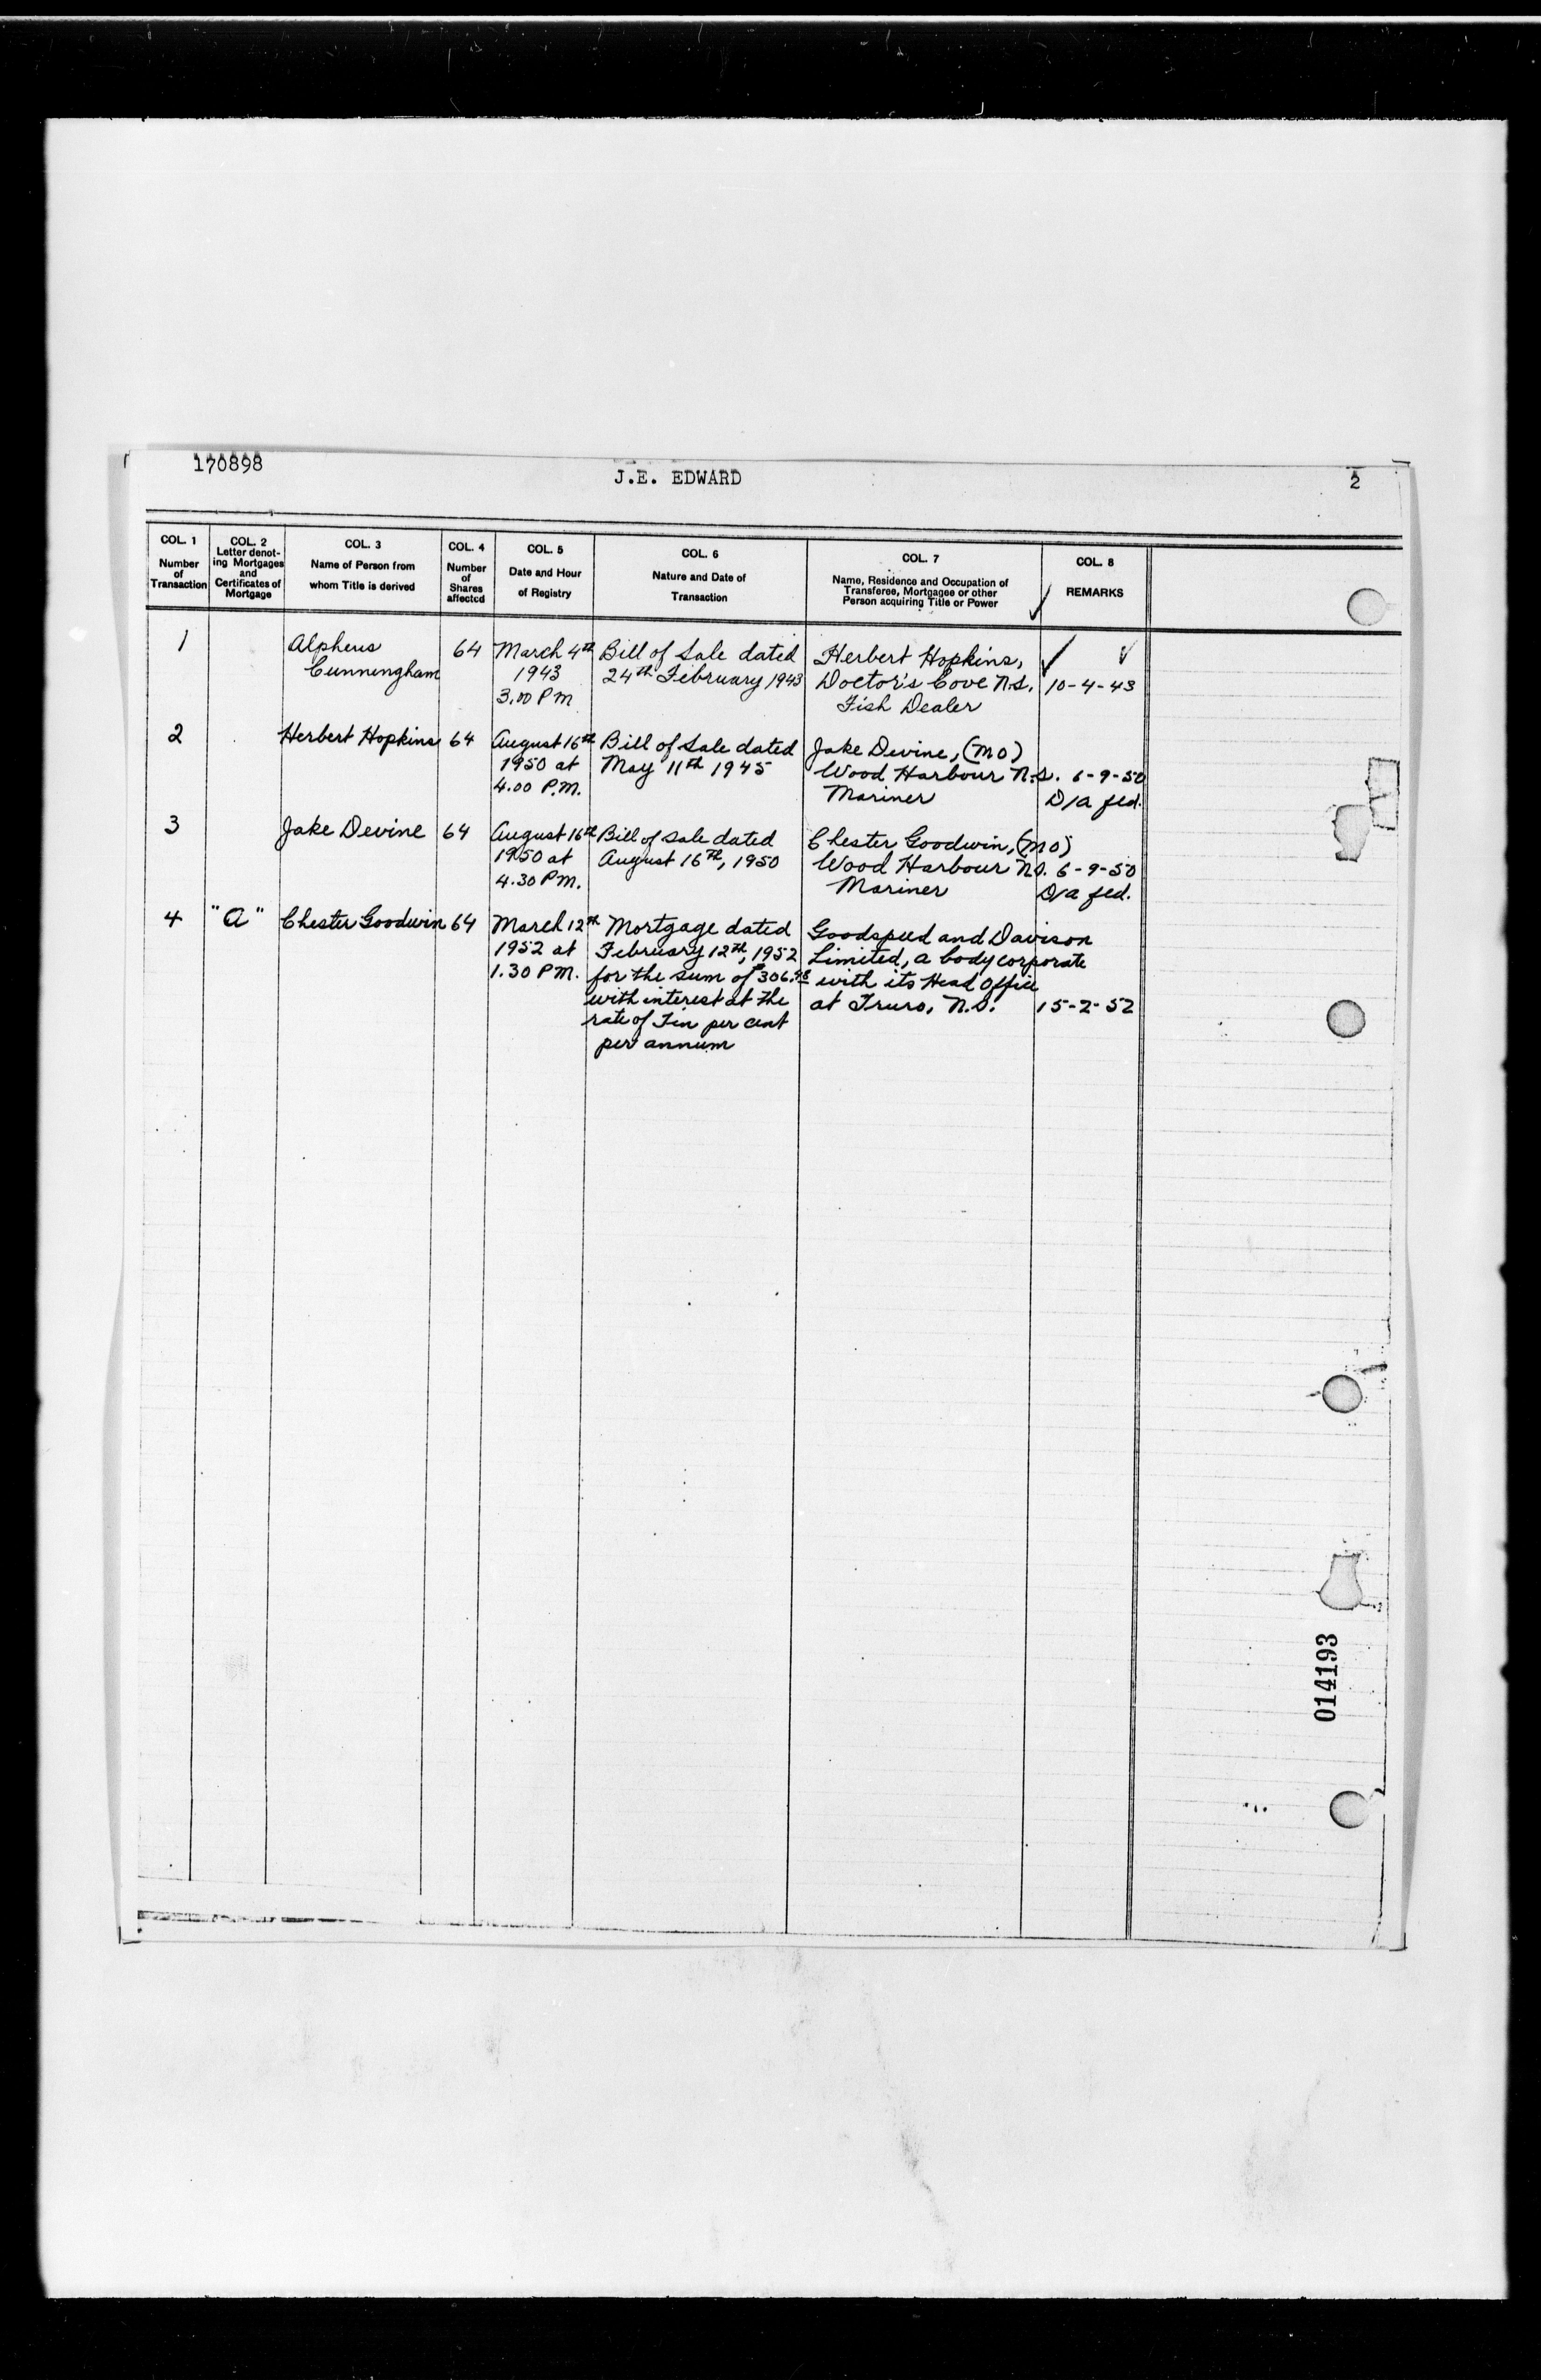 170898
J.E. EDWARD
2
COL. 1
Number
of
Transaction
COL. 2
Letter denot-
ing Mortgages
and
Certificates of
Mortgage
COL. 3
Name of Person from
whom Title is derived
COL. 4
Number
of
Shares
affected
COL. 5
Date and Hour
of Registry
COL. 6
Nature and Date of
Transaction
COL. 7
Name, Residence and Occupation of
Transferee, Mortgagee or other
Person acquiring Title or Power
COL. 8
REMARKS
1
Alpheus
Cunningham
64
March 4th
1943
3.00 P M
Bill of Sale dated
24th February 1943
Herbert Hopkins,
Doctor's Cove N.S.
Fish Dealer
10-4-43
2
Herbert Hopkins
64
August 16th
1950 at
4.00 P.M.
Bill of Sale dated
May 11th 1945
Jake Devine, (MO)
Wood Harbour N.S.
Mariner
6-9-50
D/a fld.
3
Jake Devine
64
August 16th
1950 at
4.30 P.M.
Bill of Sale dated
August 16th, 1950
Chester Goodwin, (MO)
Wood Harbour N.S.
Mariner
6-9-50
D/a fld.
4
"A"
Chester Goodwin
64
March 12th
1952 at
1.30 P.M.
Mortgage dated
February 12th, 1952
for the sum of $306.
with interest at the
rate of Ten per cent
per annum
Goodspeed and Davison
Limited, a body corporate
with its Head Office
at Truro, N.S.
15-2-52
014193